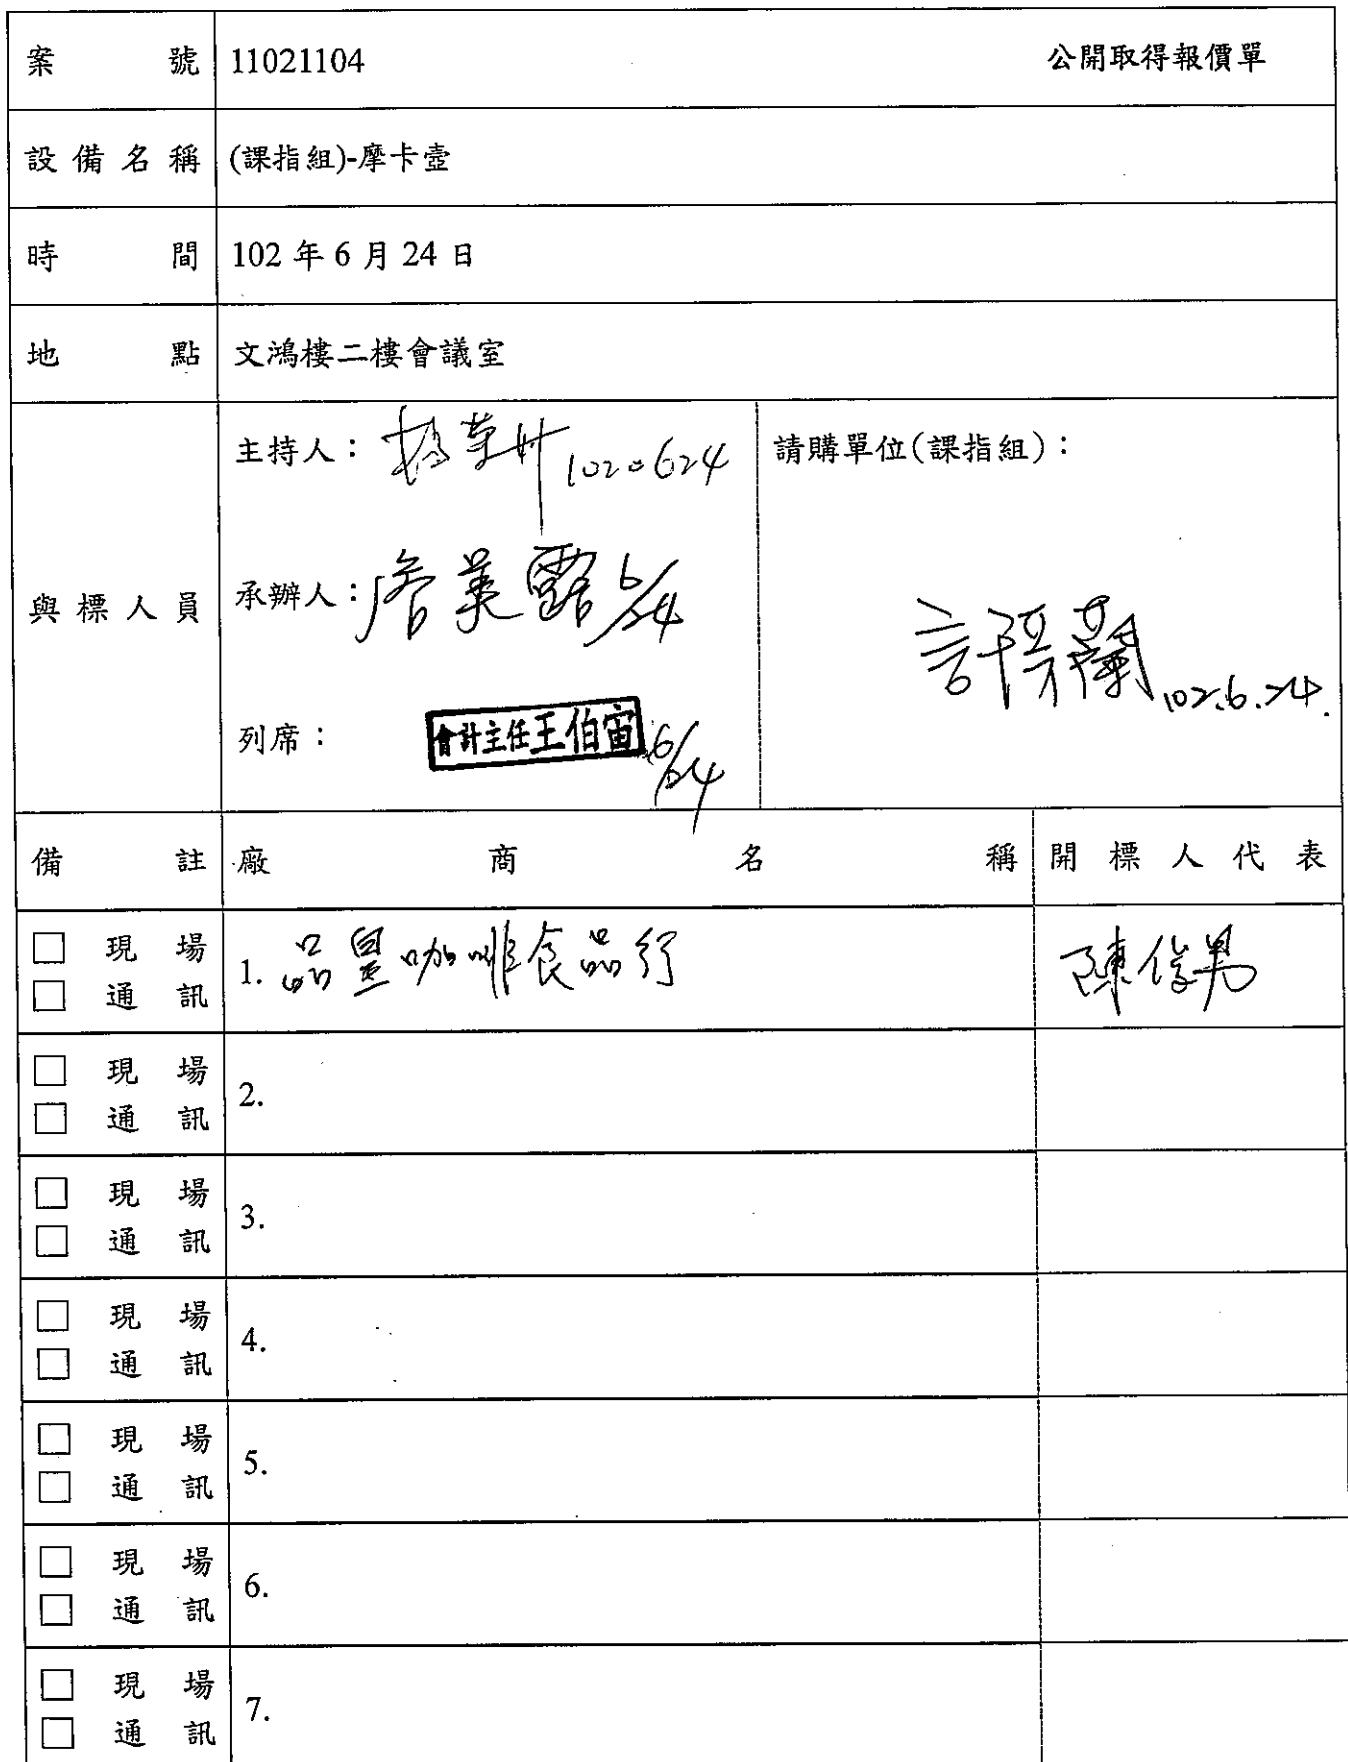 案號 11021104 公開取得報價單
設備名稱 (課指組)-摩卡壺
時間 102 年 6 月 24 日
地點 文鴻樓二樓會議室
與標人員
主持人： 1020624
承辦人：詹美露 6/24
列席： 會計主任王伯宙 6/24
請購單位(課指組)：
許 蘭 102.6.24.
備註 廠商名稱 開標人代表
□ 現場
□ 通訊
1. 品皇咖啡食品行 陳俊男
□ 現場
□ 通訊
2.
□ 現場
□ 通訊
3.
□ 現場
□ 通訊
4.
□ 現場
□ 通訊
5.
□ 現場
□ 通訊
6.
□ 現場
□ 通訊
7.